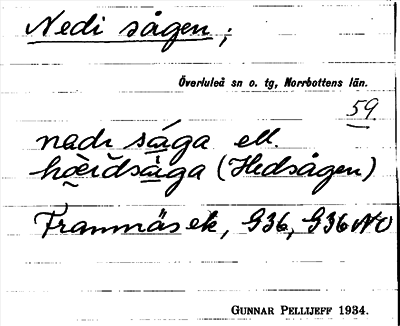 Nedi sågen;
Överluleå sn o. tg, Norrbottens län.
59
nadɩ sá̱ga ell.
hò̰ɛĭdsà̱ga (Hedsågen)
Framnäs ek, G36, G36NO
GUNNAR PELLIJEFF 1934.